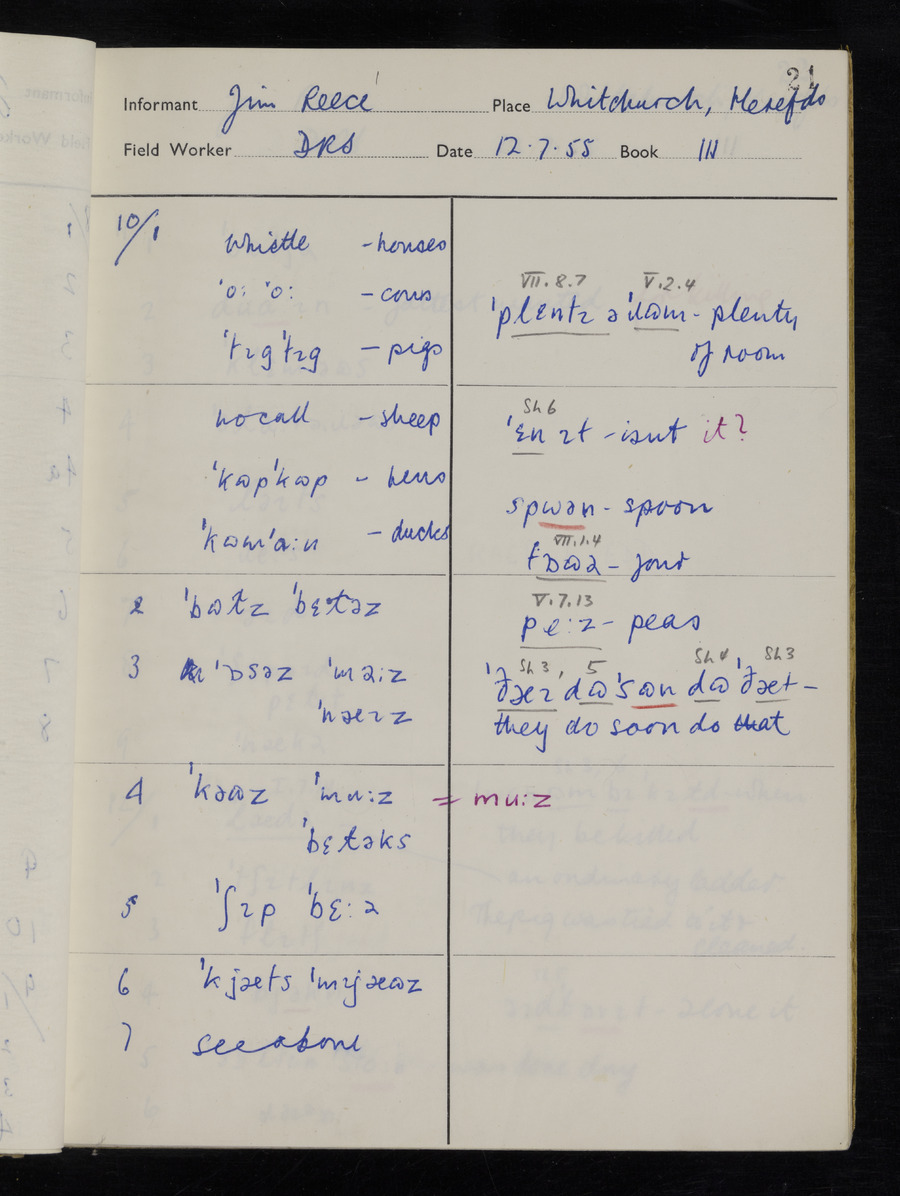 21
Informant Jim Reece Place Whitchurch, Herefds
Field Worker DRS Date 12.7.55 Book III
10/1 whistle - horses
'o: 'o: - cows
'tɪg 'tɪg - pigs
no call - sheep
'kɷp 'kɷp - hens
'kɷm 'ɑ:n - ducks
2 'bɷtɪ 'bɛtəz
3 'ɒsəz 'məi:z
'næɪz
4 'kəɷz 'mu:z = mu:z
'bɛtəks
5 'ʃɪp 'bɛ:ə
6 'kjæts 'mɪjæɷz
7 see above
VII.8.7 V.2.4
'plɛntɪ ə 'ɹɷm - plenty
of room
Sh 6
'ɛn ɪt - isnt it?
spwən - spoon
VII.1.4
fɒɷə - four
V.7.13
pe:z - peas
Sh 3, 5 Sh 4 Sh 3
'ðæɪ dɷ 'sɷn dɷ 'ðæt -
they do soon do that